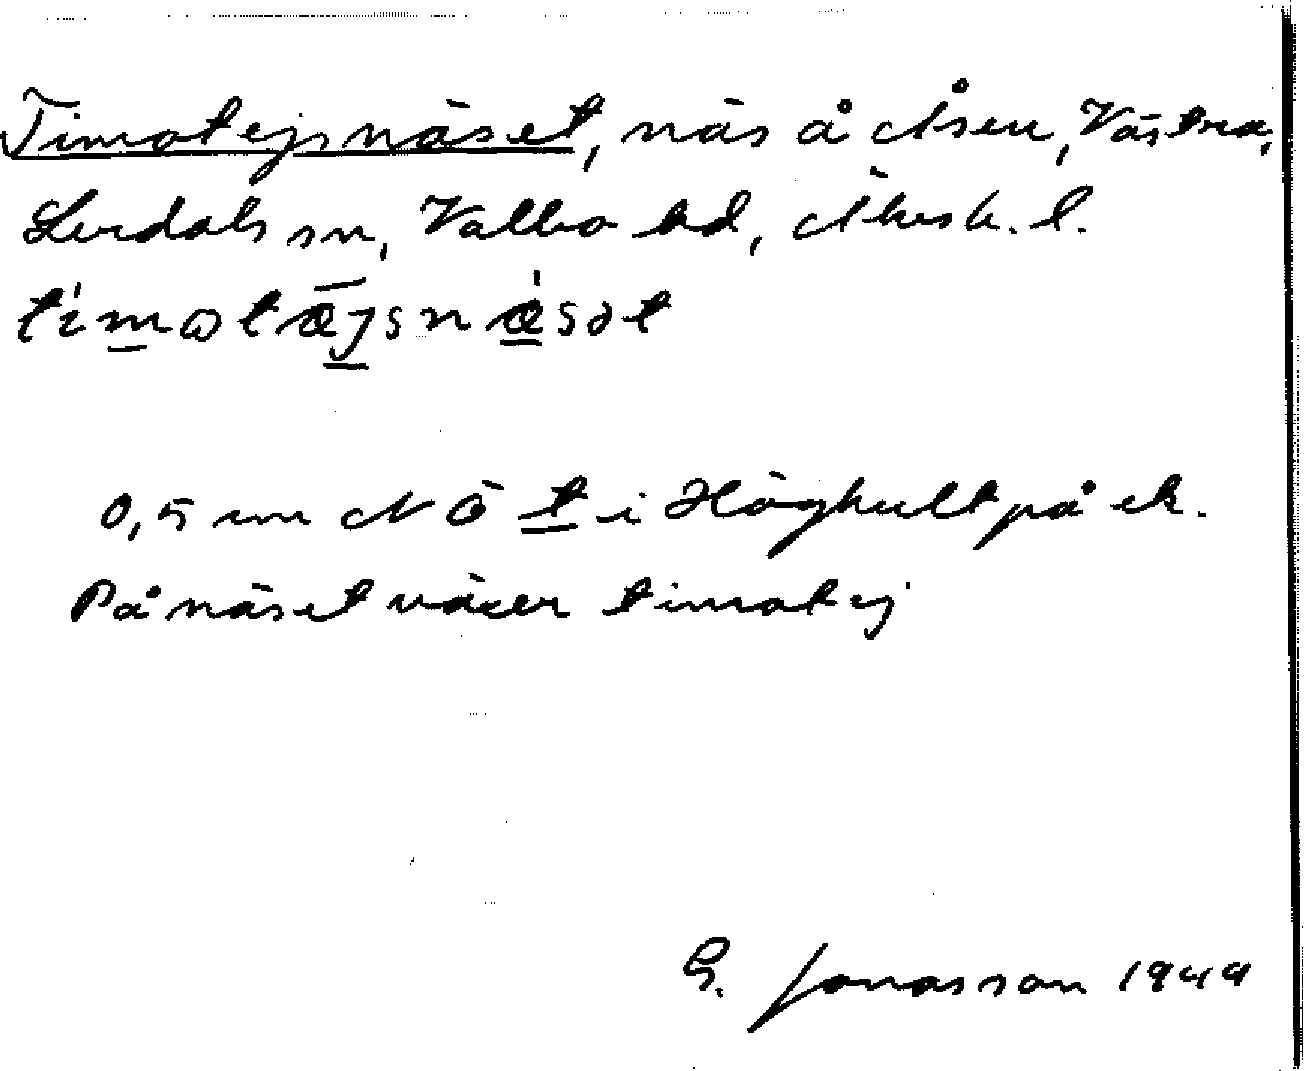 Timotejsnäset, näs å Åsen, Västra,
Lerdals sn, Valbo hd, Älvsb. l.
timotæjsnæsət
0,5 mm NÖ t i Höghult på ek.
På näset växer timotej
G. Jonasson 1949